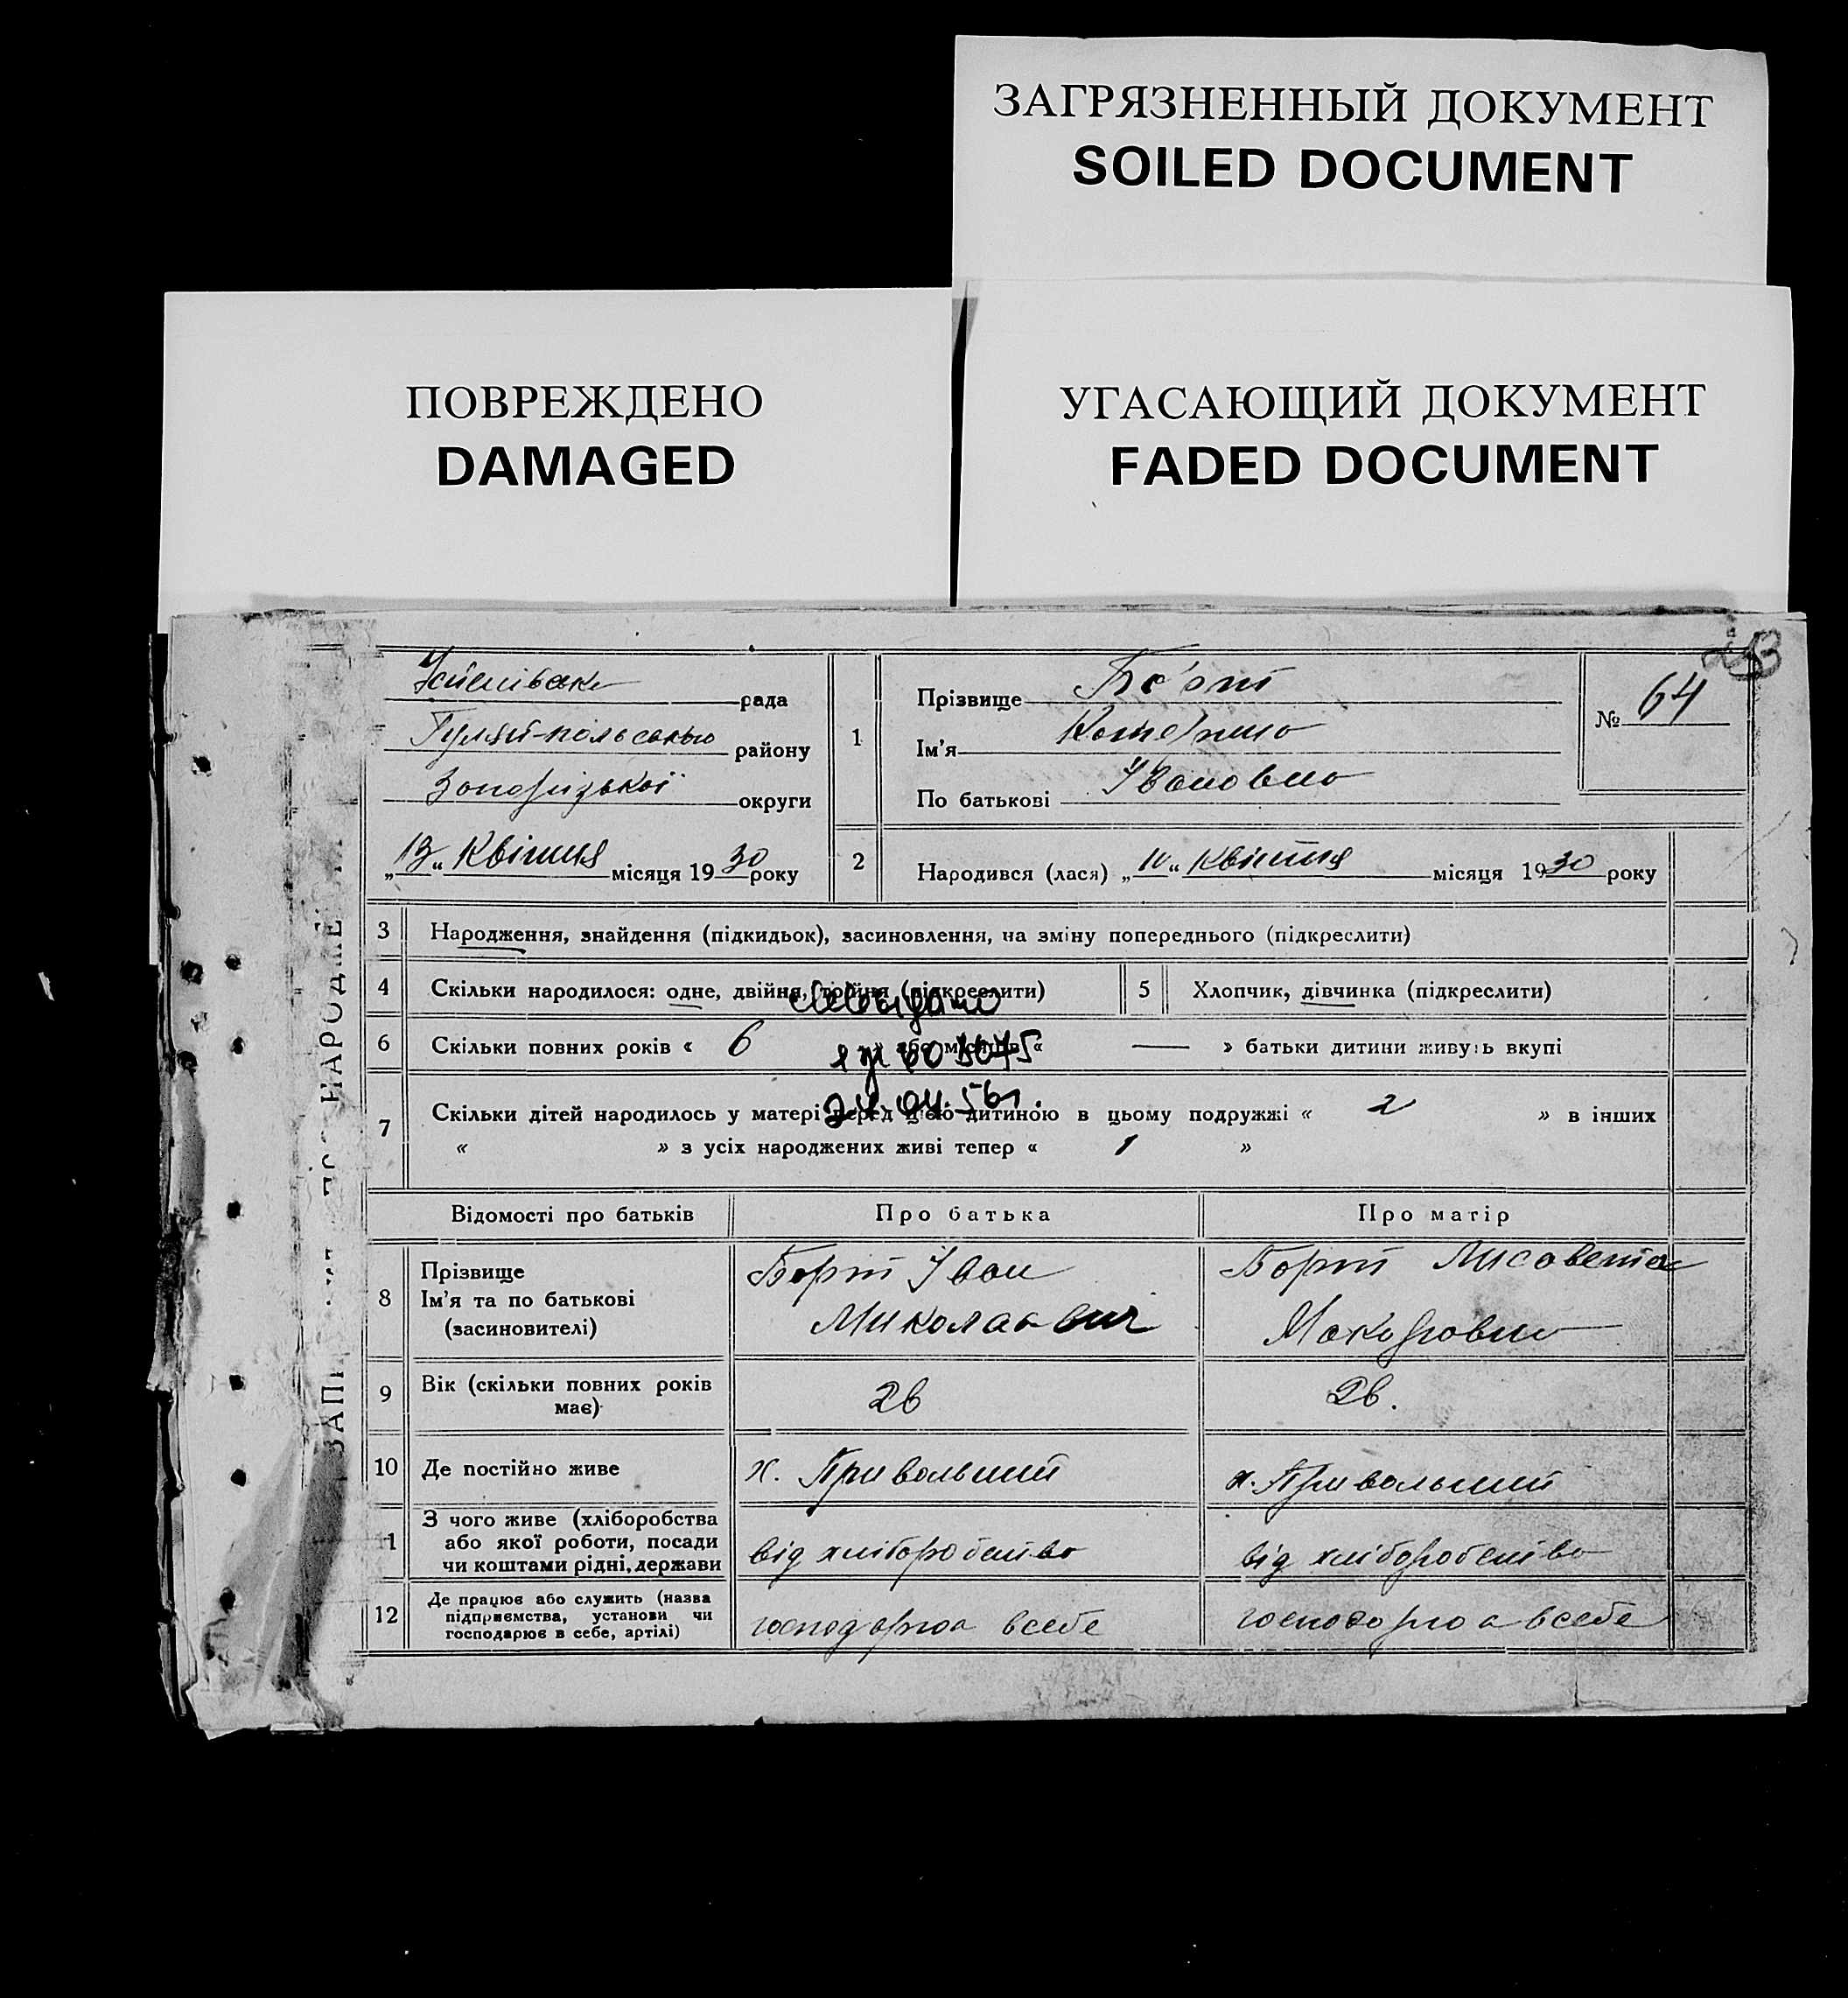 ЗАГРЯЗНЕННЫЙ ДОКУМЕНТ
SOILED DOCUMENT
ПОВРЕЖДЕНО
DAMAGED
УГАСАЮЩИЙ ДОКУМЕНТ
FADED DOCUMENT
рада
Гуляй-польського району
Запорізької округи
„13“ Квітня місяця 1930 року
1
Прізвище Борт
Ім'я Катерина
По батькові Івановна
№ 64
2
Народився (лася) „10“ Квітня місяця 1930 року
3 Народження, знайдення (підкидьок), засиновлення, на зміну попереднього (підкреслити)
4 Скільки народилося: одне, двійня, трійня (підкреслити)
5 Хлопчик, дівчинка (підкреслити)
6 Скільки повних років « 6 » або місяців « — » батьки дитини живуть вкупі
24.04.56г.
7 Скільки дітей народилось у матері перед цією дитиною в цьому подружжі « 2 » в інших
« » з усіх народжених живі тепер « 1 »
Відомості про батьків Про батька Про матір
8 Прізвище
Ім'я та по батькові
(засиновителі)
Борт Іван
Миколаєвич
Борт Лисавета
Макаровна
9 Вік (скільки повних років
має)
26
26.
10 Де постійно живе х. Привольний х. Привольний
11 З чого живе (хліборобства
або якої роботи, посади
чи коштами рідні, держави
від хліборобства
від хліборобства
12 Де працює або служить (назва
підприємства, установи чи
господарює в себе, артілі)
господарює в себе
господарює в себе